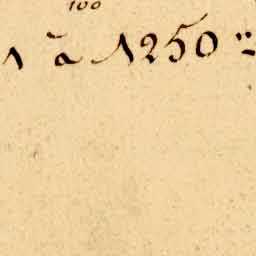 100
1 à 1250